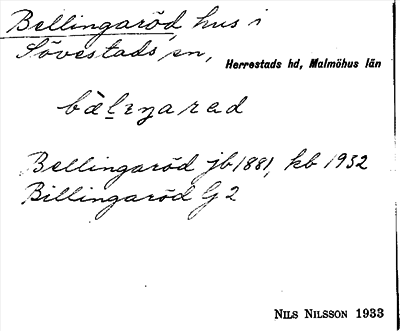 Bellingaröd, hus i
Sövestads sn,
Herrestads hd, Malmöhus län
bèlıŋarad
Bellingaröd jb 1881, kb 1932
Billingaröd G 2
NILS NILSSON 1933